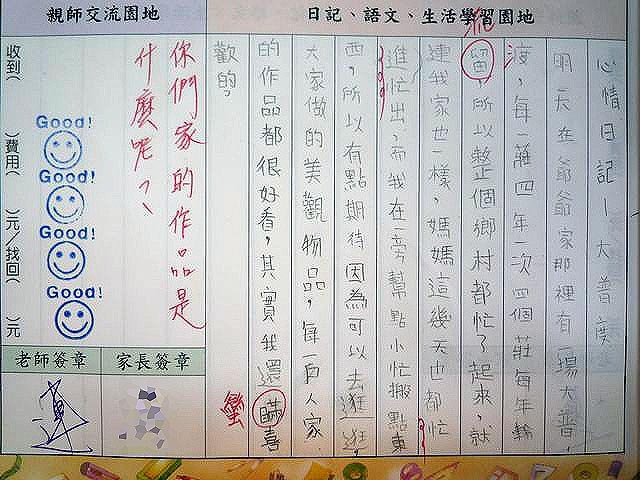 日記、語文、生活學習園地
心情日記－大普度
明天在爺爺家那裡有一場大普
渡，每一莊四年一次，四個莊每年輪
留，所以整個鄉村都忙了起來，就
流
連我家也一樣，媽媽這幾天也都忙
進忙出，而我在一旁幫點小忙搬點東
西，所以有點期待因為可以去逛逛，
大家做的美觀物品，每一戶人家
的作品都很好看，其實我還瞞喜
蠻
歡的。
親師交流園地
你們家的作品是
什麼呢？
Good!
Good!
Good!
Good!
收到（　）費用（　）元／找回（　）元
家長簽章
老師簽章